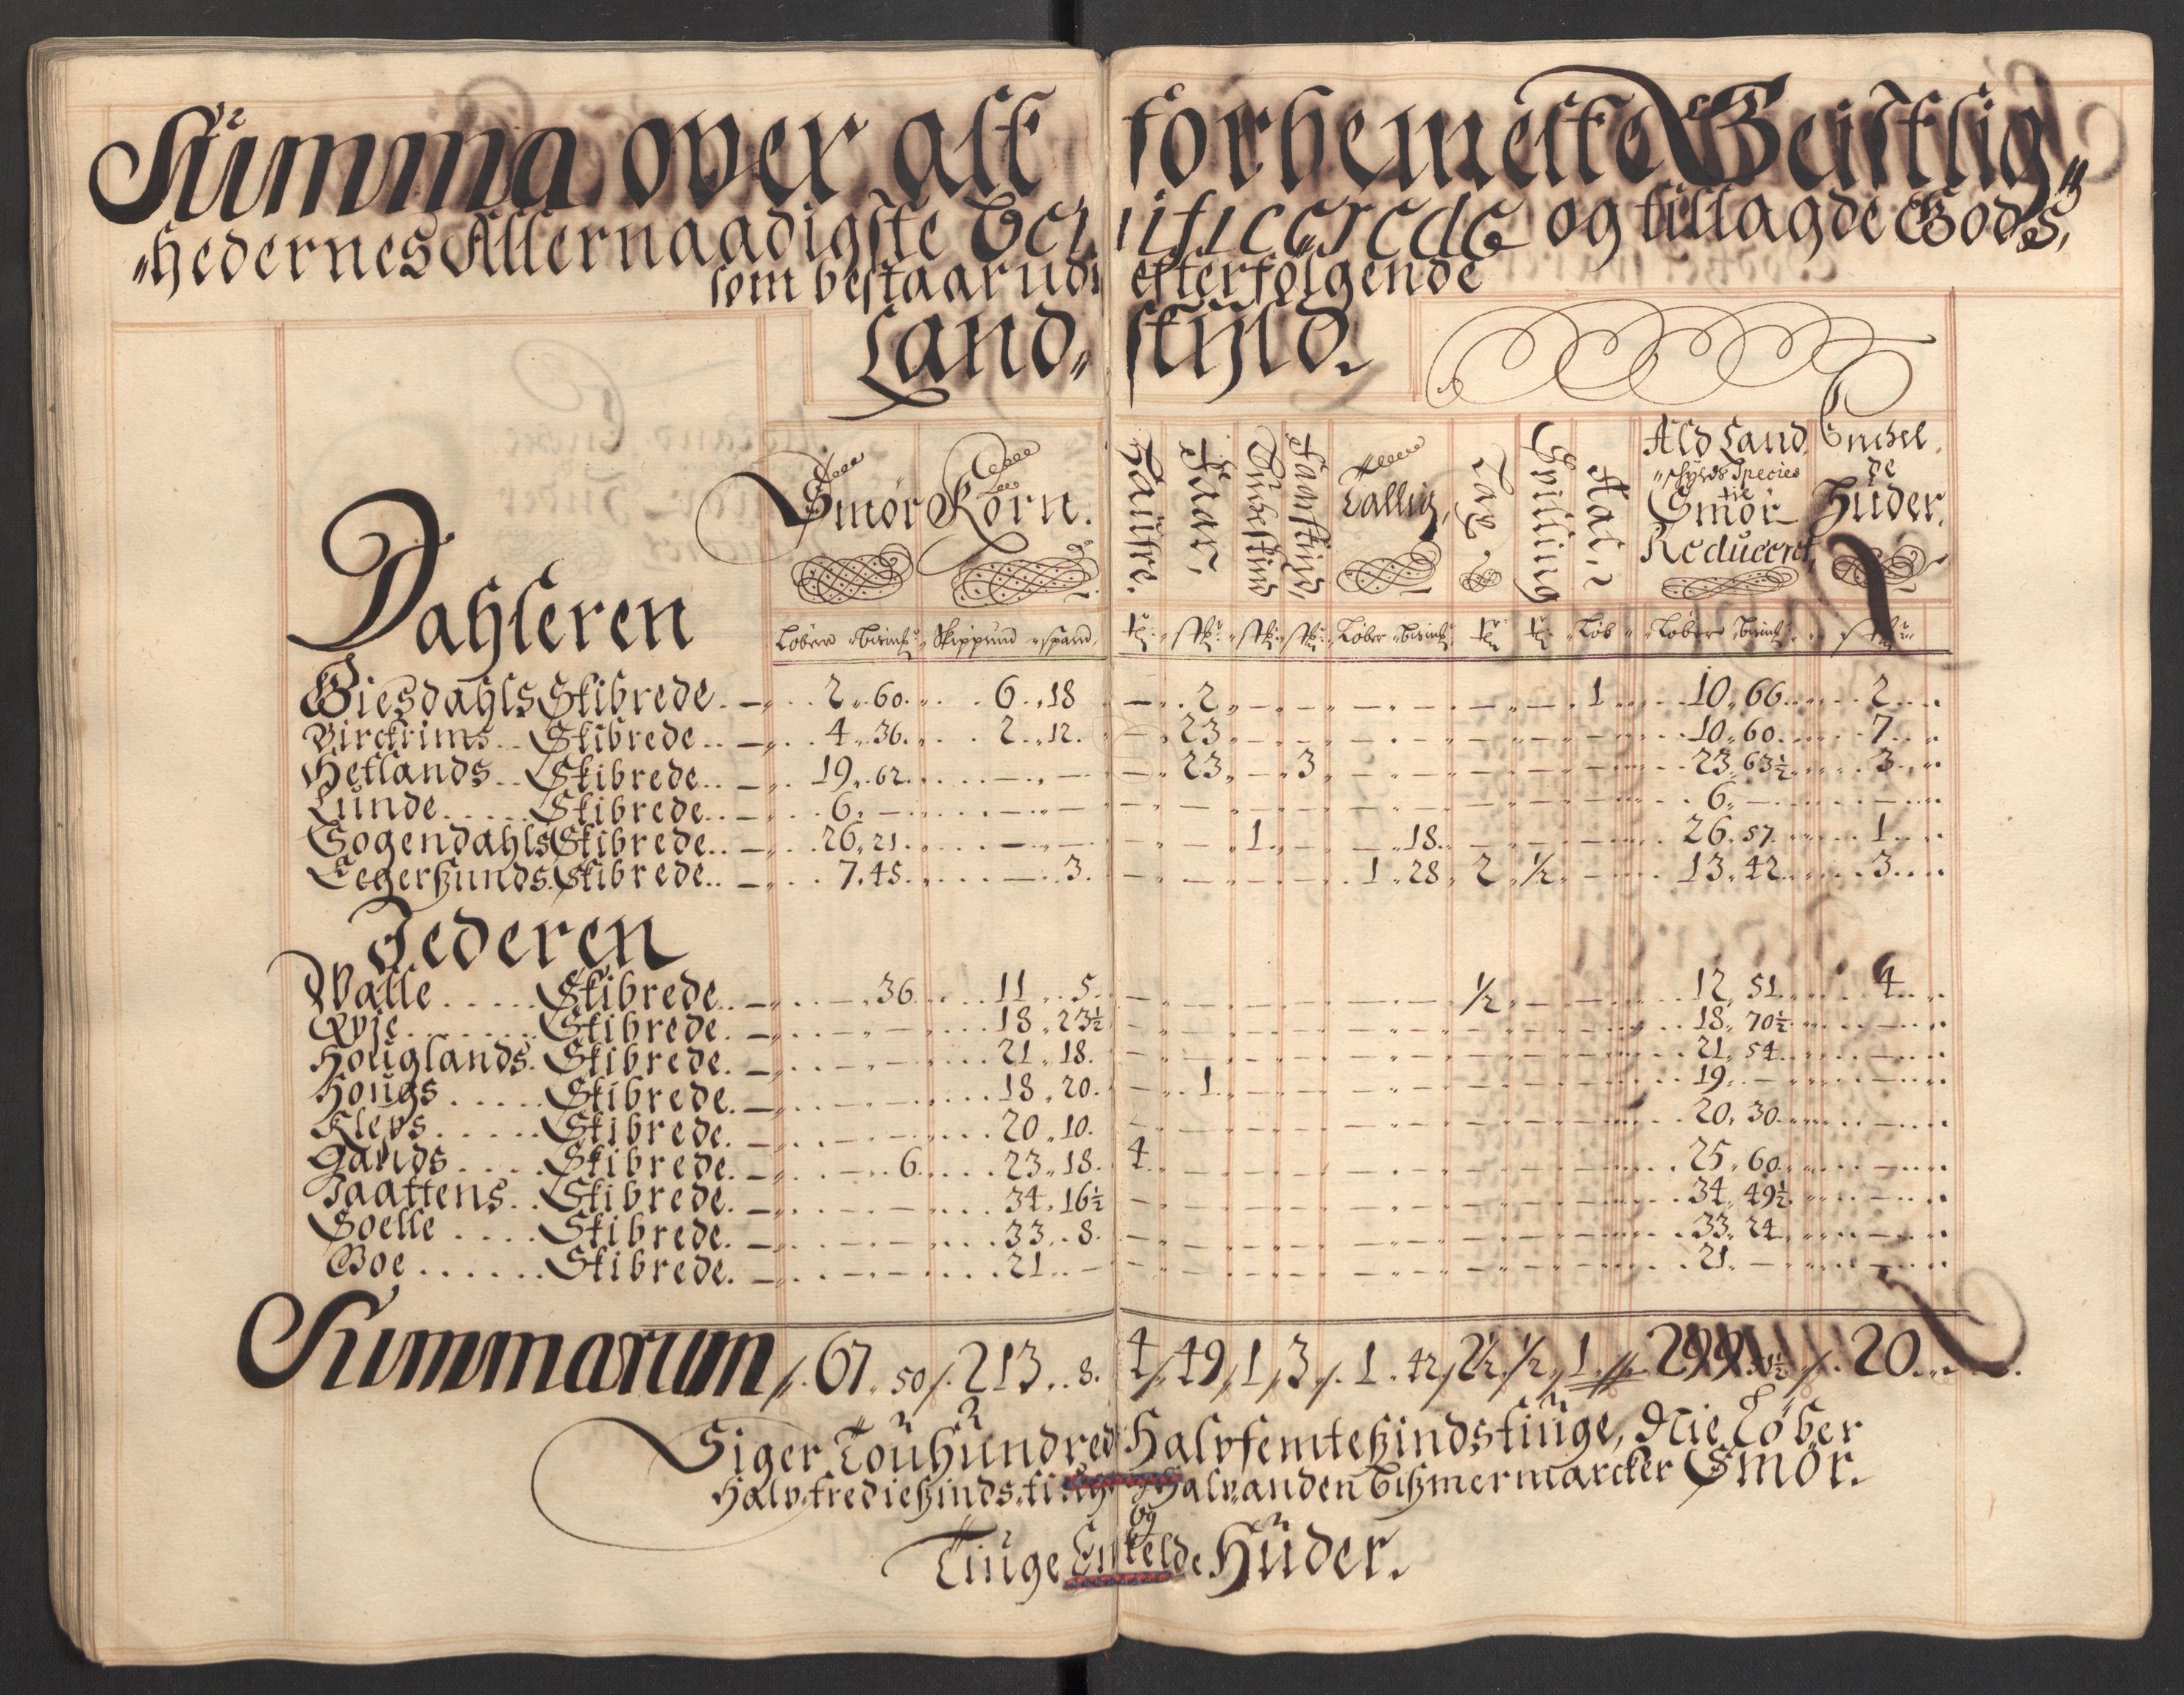 Summa over alt forbemelte Geistlig„
„hedernes Allernaadigste Beneficerede og tillagde Gods,
som bestaar udi efterfølgende
Land„ skyld.
Smør Korn. Faar, Tallig, Spilling Aal, Ald Land „skylds Species til Smør Reduceret, Enchel de Huder.
Dahleren
Løber Skippund spand Løber Løb Løber
Giesdahls Skibrede 2 60 6 18 — 2 — — — — — — 1 10 66 2
Birckrims Skibrede 4 36 2 12 — 23 — — — — — — — 10 60 7
Hetlands Skibrede 19 62 — — — 23 — 3 — — — — — 23 63½ 3
Lunde Skibrede 6 — — — — — — — — — — — — 6 — —
Sogendahls Skibrede 26 21 — — — — 1 — — 18 — — — 26 57 1
Eegerßunds Skibrede 7 45 — 3 — — — — 1 28 2 ½ — 13 42 3
Jederen
Walle Skibrede — 36 11 5 — — — — — — ½ — — 12 51 4
Qvie Skibrede — — 18 23½ — — — — — — — — — 18 70½ —
Houglands Skibrede — — 21 18 — — — — — — — — — 21 54 —
Hougs Skibrede — — 18 20 — 1 — — — — — — — 19 — —
Kleps Skibrede — — 20 10 — — — — — — — — — 20 30 —
Gands Skibrede — 6 23 18 4 — — — — — — — — 25 60 —
Taattens Skibrede — — 34 16½ — — — — — — — — — 34 49½ —
Soelle Skibrede — — 33 8 — — — — — — — — — 33 24 —
Boe Skibrede — — 21 — — — — — — — — — — 21 — —
Summarum 67 50 213 8 4 49 1 3 1 42 2½ ½ 1 299 20
Siger Touhundred Halvfemteßindstiuge, Nie Løber
Halvtredießindstiuge Halvanden Bißmermarcker Smør.
og
Tiuge Enkelde Huder.